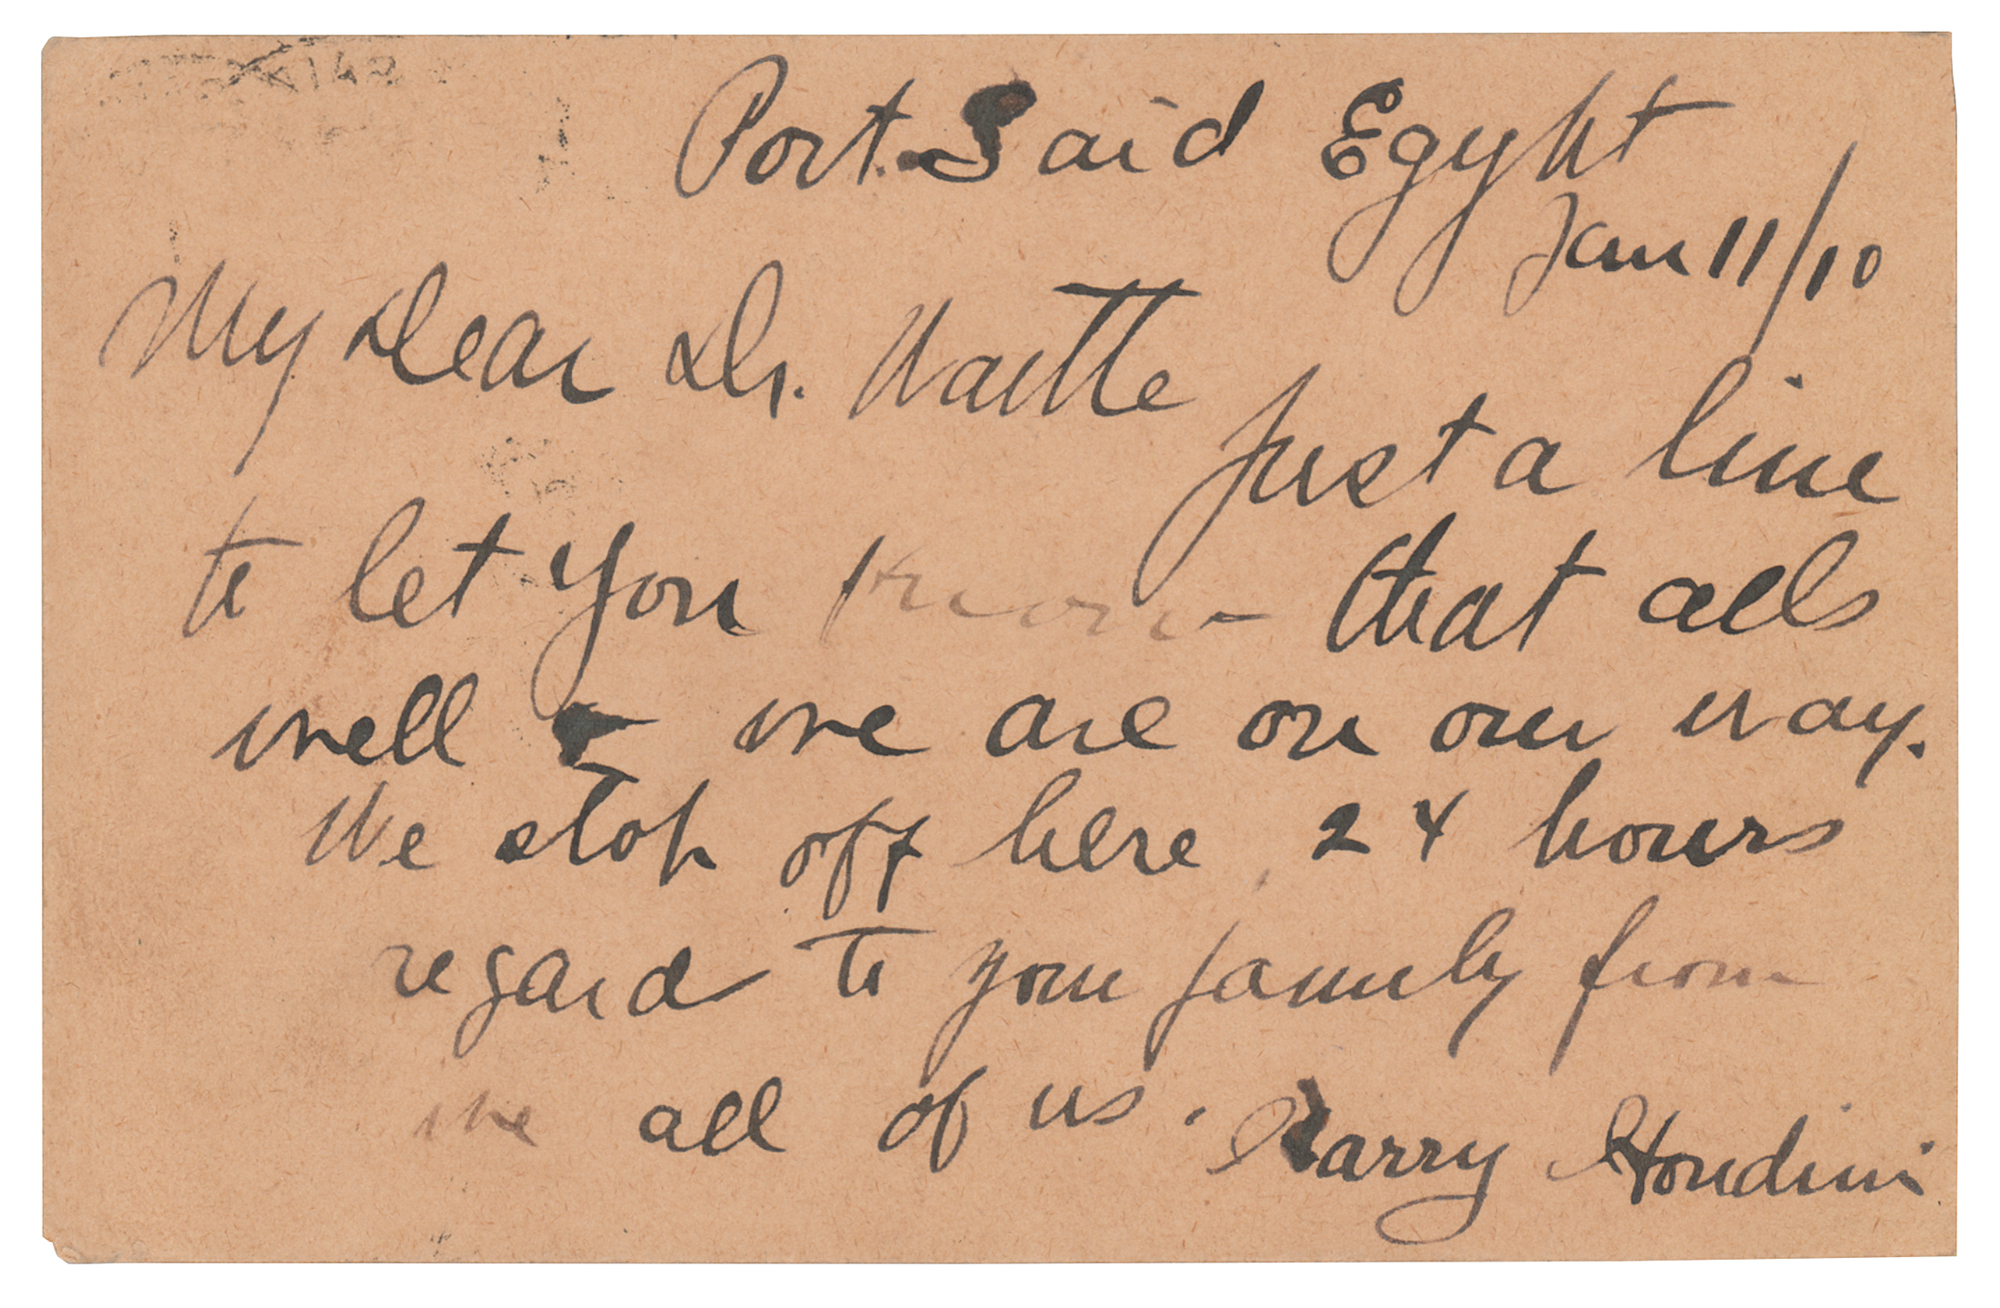 Port Said Egypt
Jan 11/10
My Dear Dr. Waitte
Just a line
to let you know that alls
well we are on our way.
We stop off here 24 hours
regard to your family from
me all of us. Harry Houdini